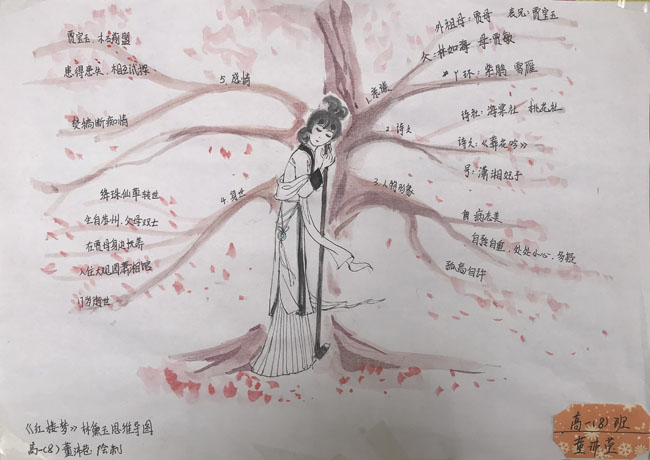 贾宝玉:木石前盟
患得患失,相互试探
焚稿断痴情
5.感情
外祖母:贾母 表兄:贾宝玉
父:林如海 母 贾敏
丫环:紫鹃 雪雁
诗社:海棠社 桃花社
2.诗文
诗文:《葬花吟》
号:潇湘妃子
3.人物形象
自尊自重,处处小心,多疑
孤高自许
4.身世
绛珠仙草转世
在贾母身边抚养
入住大观园潇湘馆
17岁逝世
《红楼梦》林黛玉思维导图
高一(8) 绘制
高一(8)班